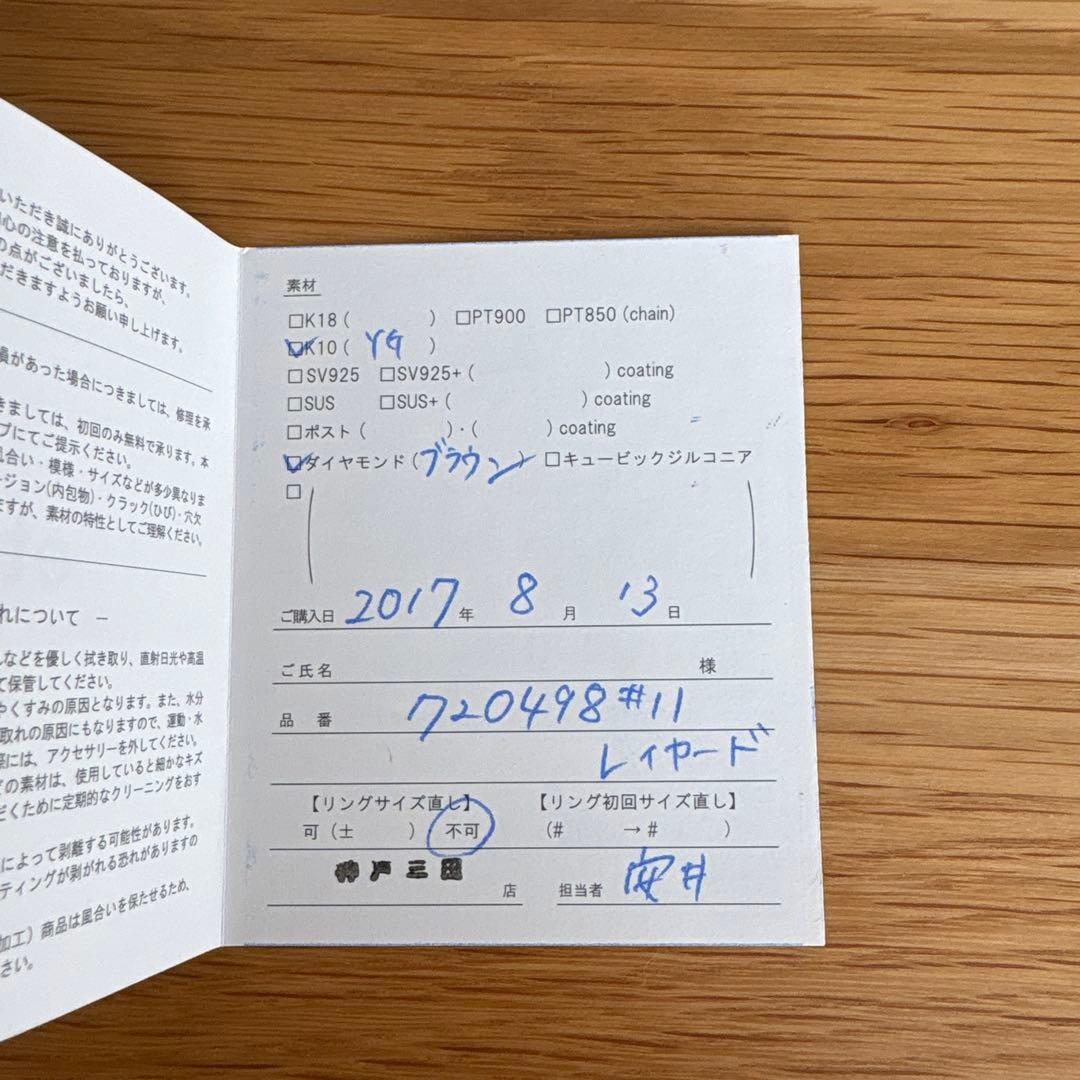 いただき誠にありがとうございます。
心の注意を払っておりますが、
の点がございましたら、
だきますようお願い申し上げます。
損があった場合につきましては、修理を承
きましては、初回のみ無料で承ります。本
プにてご提示ください。
風合い・模様・サイズなどが多少異なりま
ージョン(内包物)・クラック(ひび)・穴欠
ますが、素材の特性としてご理解ください。
れについて －
んなどを優しく拭き取り、直射日光や高温
て保管してください。
やくすみの原因となります。また、水分
取れの原因にもなりますので、運動・水
際には、アクセサリーを外してください。
どの素材は、使用していると細かなキズ
だくために定期的なクリーニングをおす
によって剥離する可能性があります。
ティングが剥がれる恐れがありますの
加工）商品は風合いを保たせるため、
さい。
素材
□K18 ( ) □PT900 □PT850 (chain)
☑K10 ( YG )
□SV925 □SV925+ ( ) coating
□SUS □SUS+ ( ) coating
□ポスト ( )・( ) coating
☑ダイヤモンド (ブラウン) □キュービックジルコニア
□ ( )
ご購入日 2017 年 8 月 13 日
ご氏名 様
品 番 720498#11
レイヤード
【リングサイズ直し】 【リング初回サイズ直し】
可 (± ) 不可 (# → # )
神戸三田 店 担当者 安井